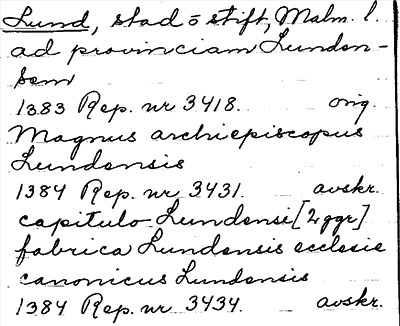 Lund, stad o stift, Malm. l.
ad provinciam Lunden-
sem
1383 Rep. nr 3418. orig.
Magnus archiepiscopus
Lundensis
1384 Rep. nr 3431. avskr.
capitulo Lundensi [2 ggr]
fabrica Lundensis ecclesie
canonicus Lundensis
1384 Rep. nr 3434. avskr.